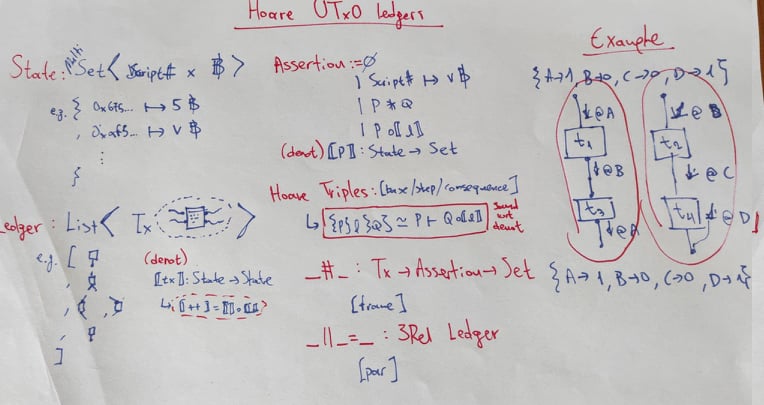 Hoare UTxO ledgers
State: Multi Set< Script# x ₿ >
e.g. { 0x6f5... ↦ 5 ₿
, 0xaf5... ↦ v ₿
⋮
}
Ledger: List< Tx >
e.g. [
,
, ,
,
]
(denot)
⟦tx⟧: State → State
↳ ⟦++⟧ = ⟦⟧∘⟦⟧
Assertion := ∅
| Script# ↦ v ₿
| P * Q
| P ∘ ⟦l⟧
(denot) ⟦P⟧: State → Set
Hoare Triples: [base/step/consequence]
↳ {P} l {Q} ≃ P ⊢ Q∘⟦l⟧ sound wrt denot
_#_ : Tx → Assertion → Set
[frame]
_||_=_ : 3Rel Ledger
[par]
Example
{A→1, B→0, C→0, D→1}
↓@A
t1
↓@B
t3
↓@A
↓@B
t2
↓@C
t4 ↓@D
{A→1, B→0, C→0, D→1}